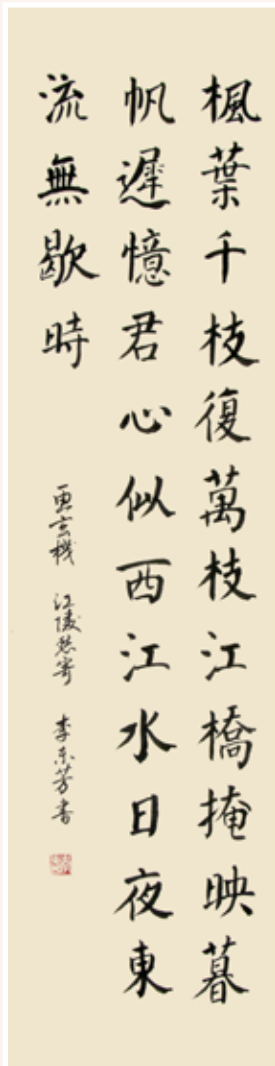 楓葉千枝復萬枝江橋掩映暮
帆遲憶君心似西江水日夜東
流無歇時
魚玄機 江陵愁寄 李東芳書